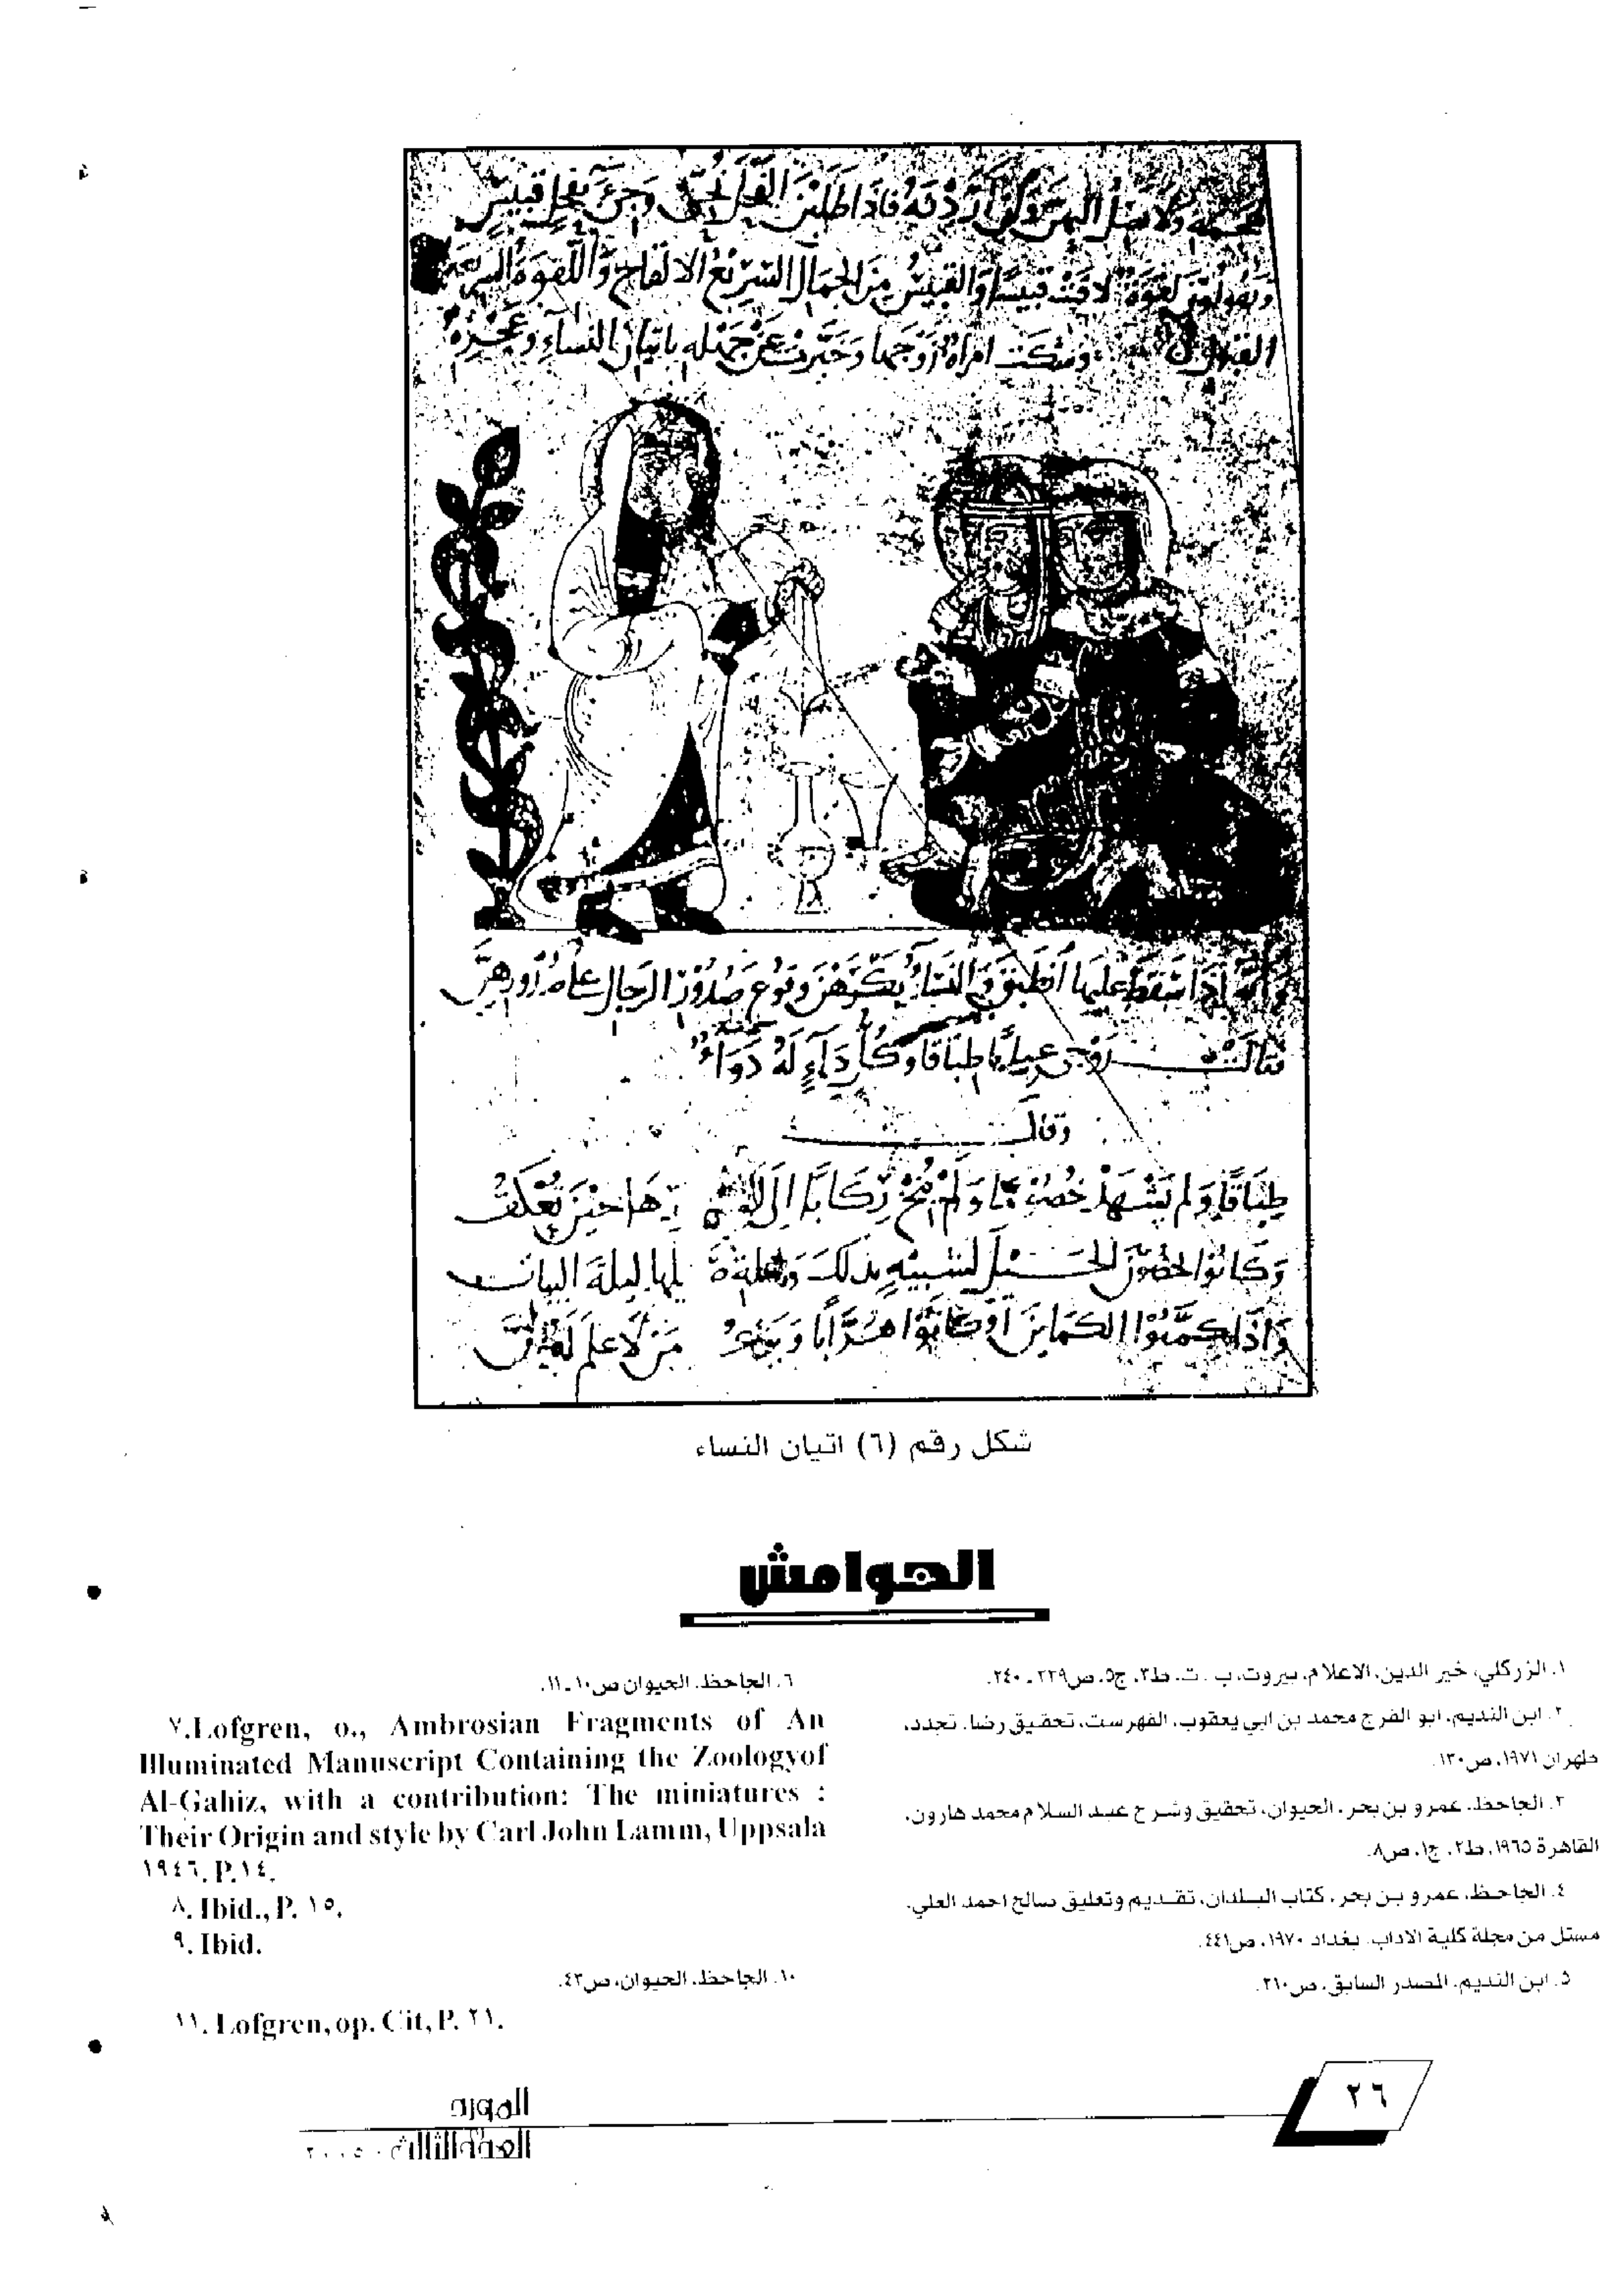 وشكت امراة زوجها وخبرت عن جهله باتيان النساء وعجزه
وانه اذا سقط عليها انطبق والنساء يكرهن وقوع صدور الرجال على صدورهن
فقالت زوجي عياياء طباقا وكل داء له دواء
وقال
شكل رقم (٦) اتيان النساء
الهوامش
١. الزركلي، خير الدين، الاعلام، بيروت، ب . ت، ط٣، ج٥، ص٢٣٩ـ ٢٤٠.
٢. ابن النديم، ابو الفرج محمد بن ابي يعقوب، الفهرست، تحقيق رضا. تجدد،
طهران ١٩٧١، ص١٣٠.
٣. الجاحظ، عمرو بن بحر، الحيوان، تحقيق وشرح عبد السلام محمد هارون،
القاهرة ١٩٦٥، ط٢، ج١، ص٨.
٤. الجاحظ، عمرو بن بحر، كتاب البلدان، تقديم وتعليق صالح احمد العلي،
مستل من مجلة كلية الاداب. بغداد ١٩٧٠، ص٤٤١.
٥. ابن النديم، المصدر السابق، ص٢١٠.
٦. الجاحظ، الحيوان ص١٠ـ١١.
٧.Lofgren, o., Ambrosian Fragments of An
Illuminated Manuscript Containing the Zoologyof
Al-Gahiz, with a contribution: The miniatures :
Their Origin and style by Carl John Lamm, Uppsala
١٩٤٦. P.١٤.
٨. Ibid., P. ١٥.
٩. Ibid.
١٠. الجاحظ، الحيوان، ص٤٣.
١١. Lofgren, op. Cit, P. ٢١.
المورد
العدد الثالث ٢٠٠٥
٢٦